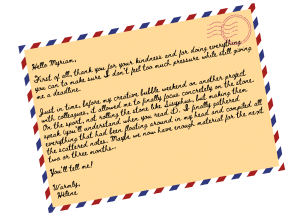 Hello Myriam,
First of all, thank you for your kindness and for doing everything
you can to make sure I don't feel too much pressure while still giving
me a deadline.
Just in time, before my creative bubble weekend on another project
with colleagues, it allowed me to finally focus concretely on the stone.
Or the sport, not rolling the stone like Sisyphus, but making them
speak (you'll understand when you read :D). I finally gathered
everything that had been floating around in my head and compiled all
the scattered notes. Maybe we now have enough material for the next
two or three months...
You'll tell me!
Warmly,
Hélène